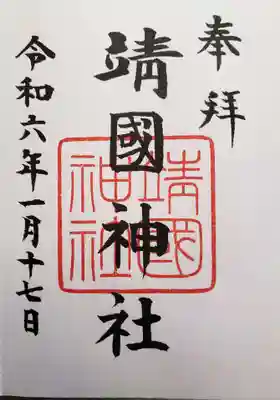 奉拝
靖國神社
靖國神社
令和六年一月十七日